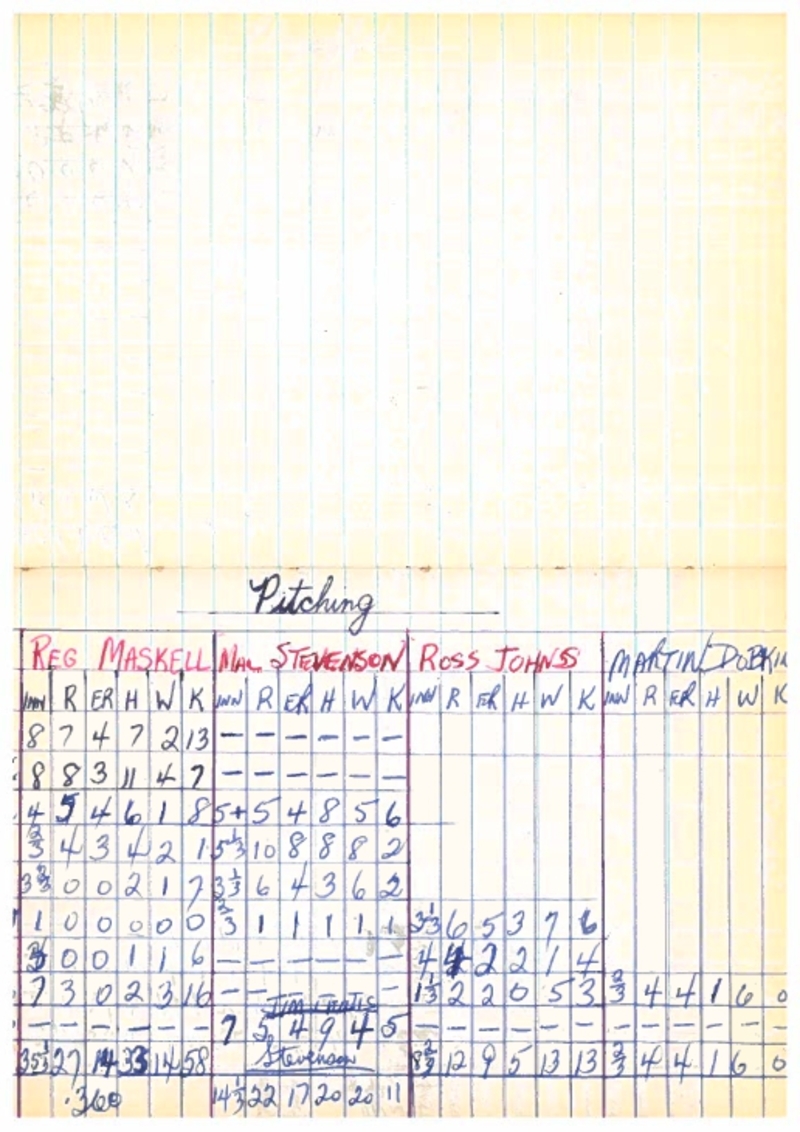 Pitching
REG MASKELL MAL STEVENSON ROSS JOHNSS MARTIN DOBKIN
INN R ER H W K INN R ER H W K INN R ER H W K INN R ER H W K
8 7 4 7 2 13 — — — — — —
8 8 3 11 4 7 — — — — — —
4 5 4 6 1 8 5+ 5 4 8 5 6
2/3 4 3 4 2 1 5 1/3 10 8 8 8 2
3 2/3 0 0 2 1 7 3 1/3 6 4 3 6 2
1 0 0 0 0 0 2/3 1 1 1 1 1 3 1/3 6 5 3 7 6
0 0 1 1 6 — — — — — — 4 4 2 2 1 4
7 3 0 2 3 16 — — 1 1/3 2 2 0 5 3 2/3 4 4 1 6 0
— — — — — — 7 5 4 9 4 5 — — — — — — — — — — — —
35 1/3 27 14 33 14 58 Stevenson 8 2/3 12 9 5 13 13 2/3 4 4 1 6 0
.360 14 1/3 22 17 20 20 11